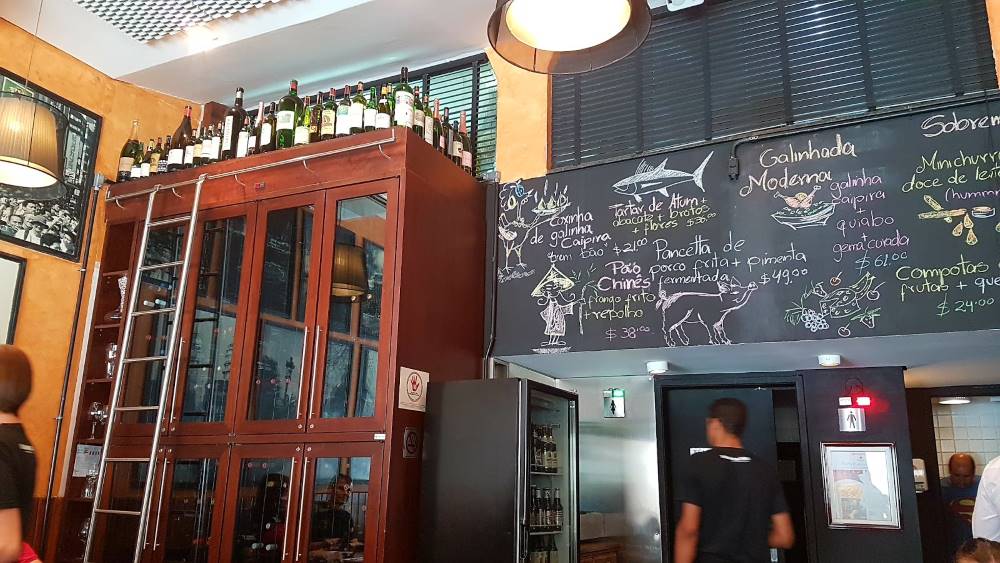 Coxinha
de galinha
Caipira
$21.00
Tartar de Atum +
abacate + brotos
+ flores $36.00
Pão
Chinês
frango frito
+ repolho
$38.00
Pancetta de
porco frita + pimenta
fermentada
$49.00
Galinhada
Moderna
galinha
caipira
+
quiabo
+
gema curada
$61.00
Sobrem
Minichurr
doce de leit
(humm
Compotas
frutas + que
$24.00